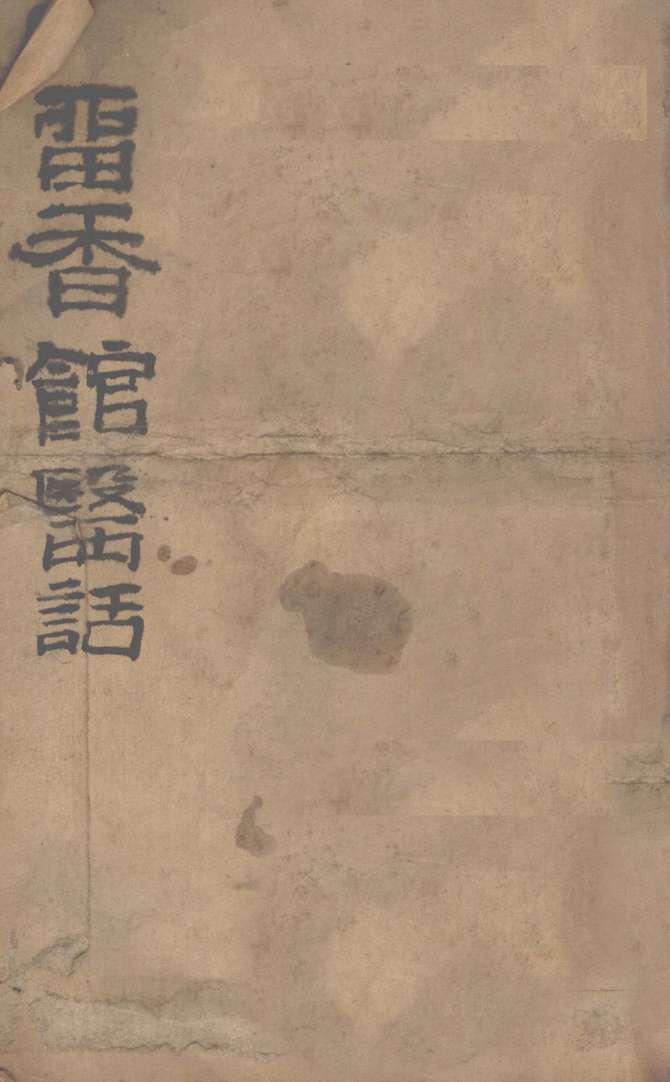 畱香館醫話